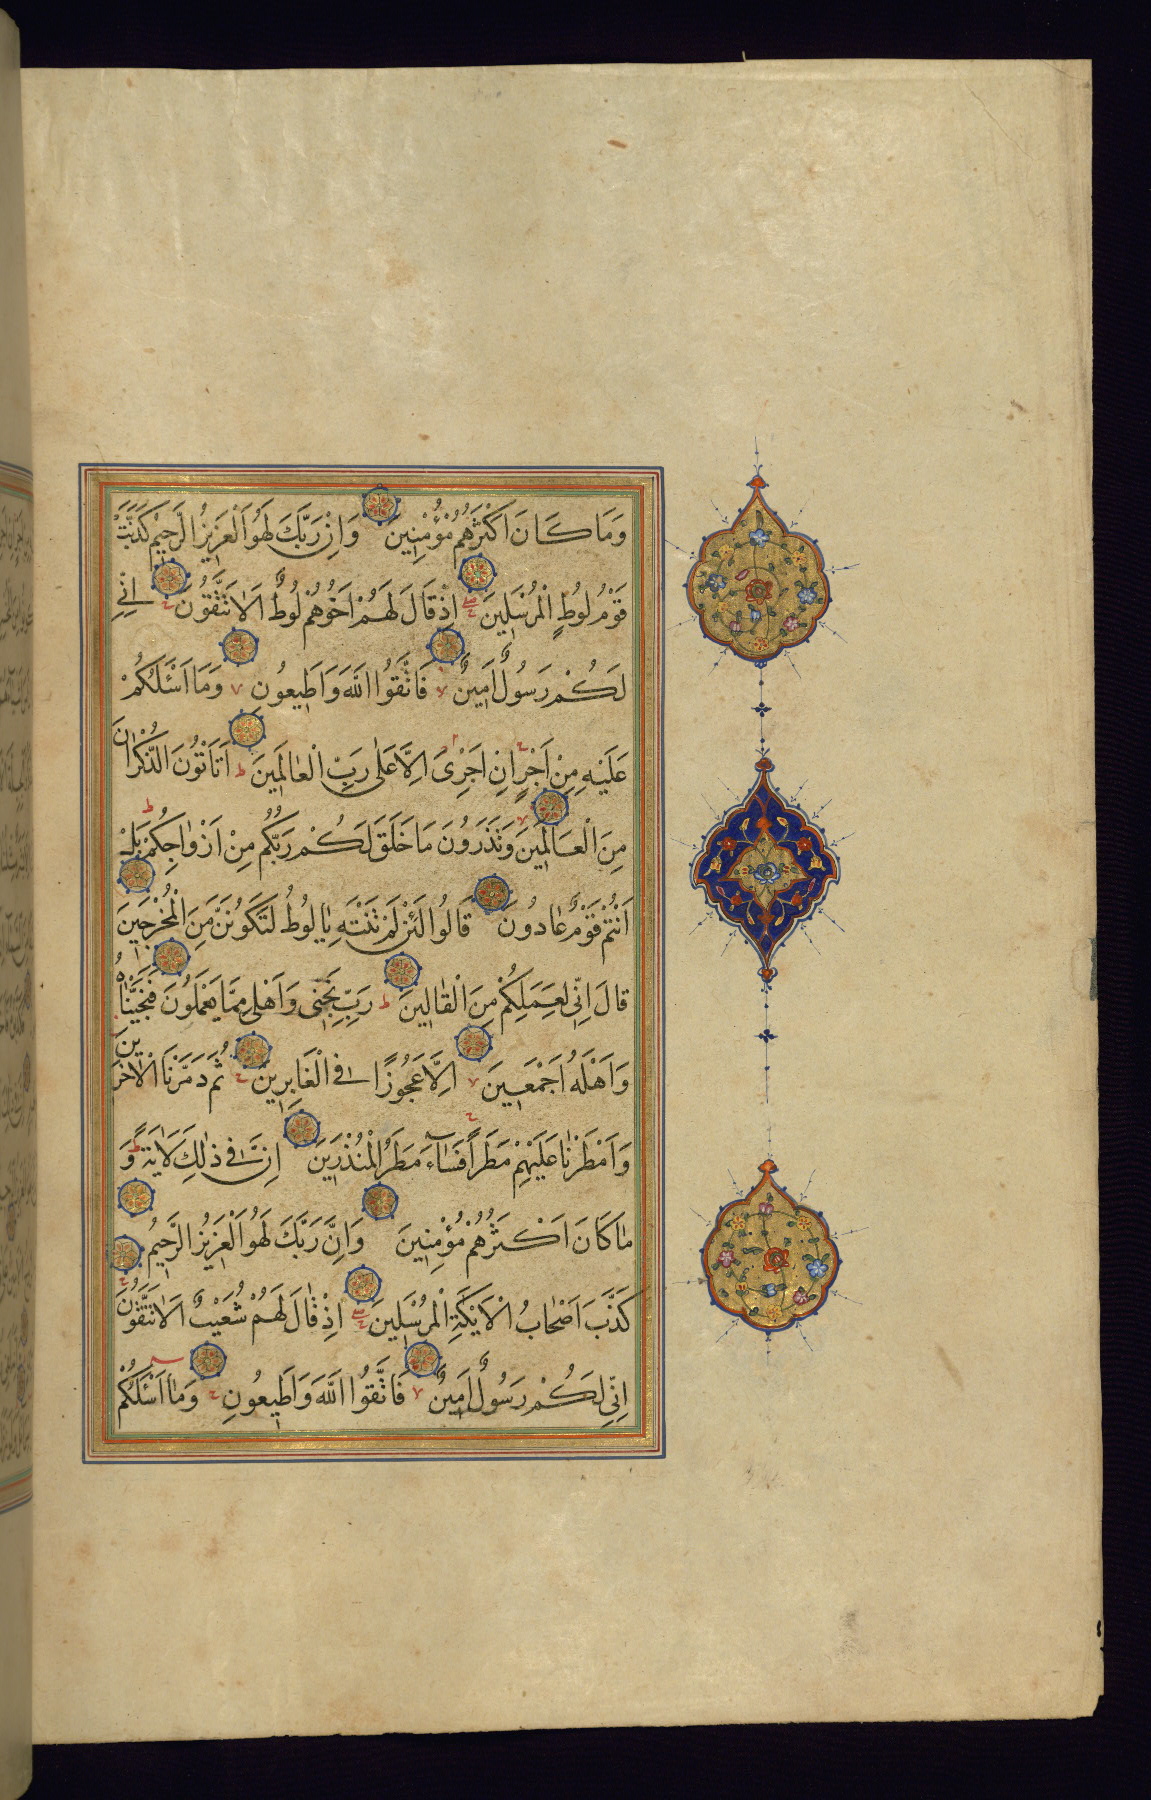 وَمَا كَانَ اَكْثَرُهُمْ مُؤْمِنِينَ وَاِنَّ رَبَّكَ لَهُوَ الْعَزِيزُ الرَّحِيمُ كَذَّبَتْ
قَوْمُ لُوطٍ الْمُرْسَلِينَ اِذْ قَالَ لَهُمْ اَخُوهُمْ لُوطٌ اَلَا تَتَّقُونَ اِنِّي
لَكُمْ رَسُولٌ اَمِينٌ فَاتَّقُوا اللّٰهَ وَاَطِيعُونِ وَمَا اَسْئَلُكُمْ
عَلَيْهِ مِنْ اَجْرٍ اِنْ اَجْرِيَ اِلَّا عَلٰى رَبِّ الْعَالَمِينَ اَتَأْتُونَ الذُّكْرَانَ
مِنَ الْعَالَمِينَ وَتَذَرُونَ مَا خَلَقَ لَكُمْ رَبُّكُمْ مِنْ اَزْوَاجِكُمْ بَلْ
اَنْتُمْ قَوْمٌ عَادُونَ قَالُوا لَئِنْ لَمْ تَنْتَهِ يَا لُوطُ لَتَكُونَنَّ مِنَ الْمُخْرَجِينَ
قَالَ اِنِّي لِعَمَلِكُمْ مِنَ الْقَالِينَ رَبِّ نَجِّنِي وَاَهْلِي مِمَّا يَعْمَلُونَ فَنَجَّيْنَاهُ
وَاَهْلَهُ اَجْمَعِينَ اِلَّا عَجُوزًا فِي الْغَابِرِينَ ثُمَّ دَمَّرْنَا الْاٰخَرِينَ
وَاَمْطَرْنَا عَلَيْهِمْ مَطَرًا فَسَاءَ مَطَرُ الْمُنْذَرِينَ اِنَّ فِي ذٰلِكَ لَاٰيَةً وَ
مَا كَانَ اَكْثَرُهُمْ مُؤْمِنِينَ وَاِنَّ رَبَّكَ لَهُوَ الْعَزِيزُ الرَّحِيمُ
كَذَّبَ اَصْحَابُ الْاَيْكَةِ الْمُرْسَلِينَ اِذْ قَالَ لَهُمْ شُعَيْبٌ اَلَا تَتَّقُونَ
اِنِّي لَكُمْ رَسُولٌ اَمِينٌ فَاتَّقُوا اللّٰهَ وَاَطِيعُونِ وَمَا اَسْئَلُكُمْ